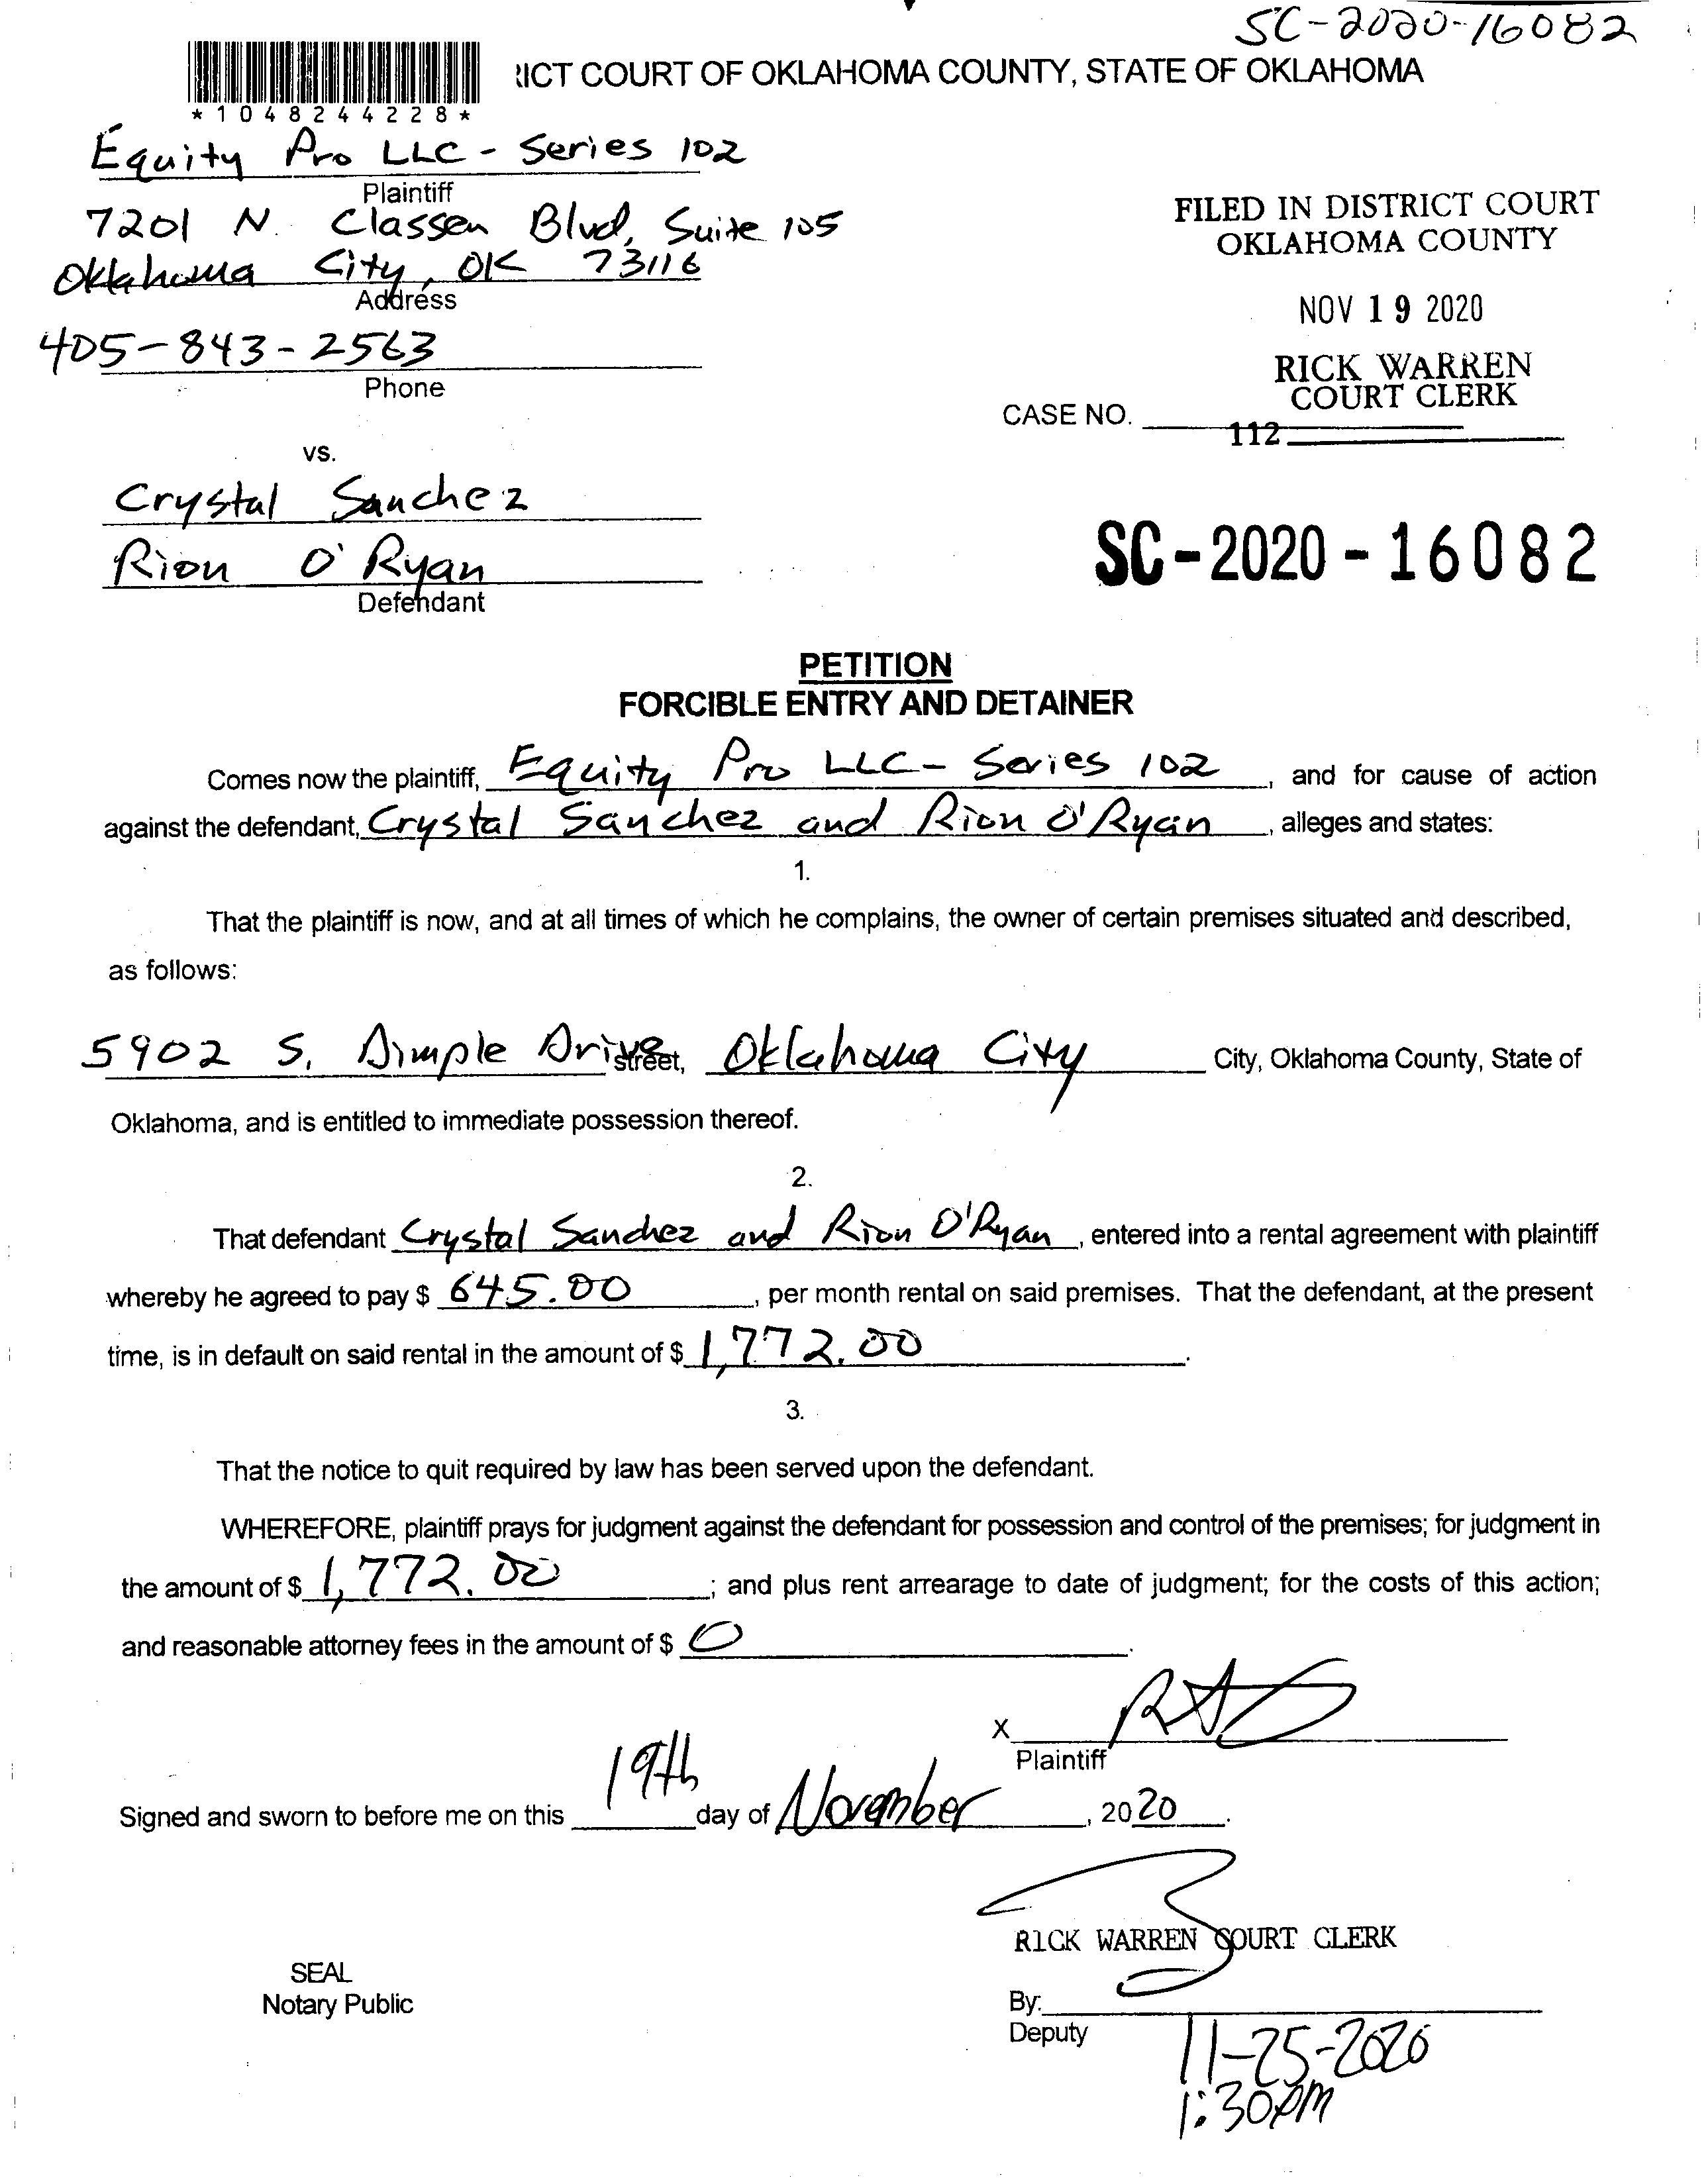 SC-2020-16082
ICT COURT OF OKLAHOMA COUNTY, STATE OF OKLAHOMA
*1048244228*
Equity Pro LLC - Series 102
Plaintiff
7201 N. Classen Blvd, Suite 105
Oklahoma City, OK 73116
Address
405-843-2563
Phone
FILED IN DISTRICT COURT
OKLAHOMA COUNTY
NOV 19 2020
RICK WARREN
COURT CLERK
CASE NO.
112
vs.
Crystal Sanchez
Rion O'Ryan
Defendant
SC-2020-16082
PETITION
FORCIBLE ENTRY AND DETAINER
Comes now the plaintiff, Equity Pro LLC - Series 102, and for cause of action
against the defendant, Crystal Sanchez and Rion O'Ryan, alleges and states:
1.
That the plaintiff is now, and at all times of which he complains, the owner of certain premises situated and described,
as follows:
5902 S. Dimple Drive street, Oklahoma City City, Oklahoma County, State of
Oklahoma, and is entitled to immediate possession thereof.
2.
That defendant Crystal Sanchez and Rion O'Ryan, entered into a rental agreement with plaintiff
whereby he agreed to pay $ 645.00, per month rental on said premises. That the defendant, at the present
time, is in default on said rental in the amount of $ 1,772.00.
3.
That the notice to quit required by law has been served upon the defendant.
WHEREFORE, plaintiff prays for judgment against the defendant for possession and control of the premises; for judgment in
the amount of $ 1,772.00; and plus rent arrearage to date of judgment; for the costs of this action;
and reasonable attorney fees in the amount of $ 0.
X
Plaintiff
Signed and sworn to before me on this 19th day of November, 2020.
RICK WARREN COURT CLERK
SEAL
Notary Public
By:
Deputy
11-25-2020
1:30pm